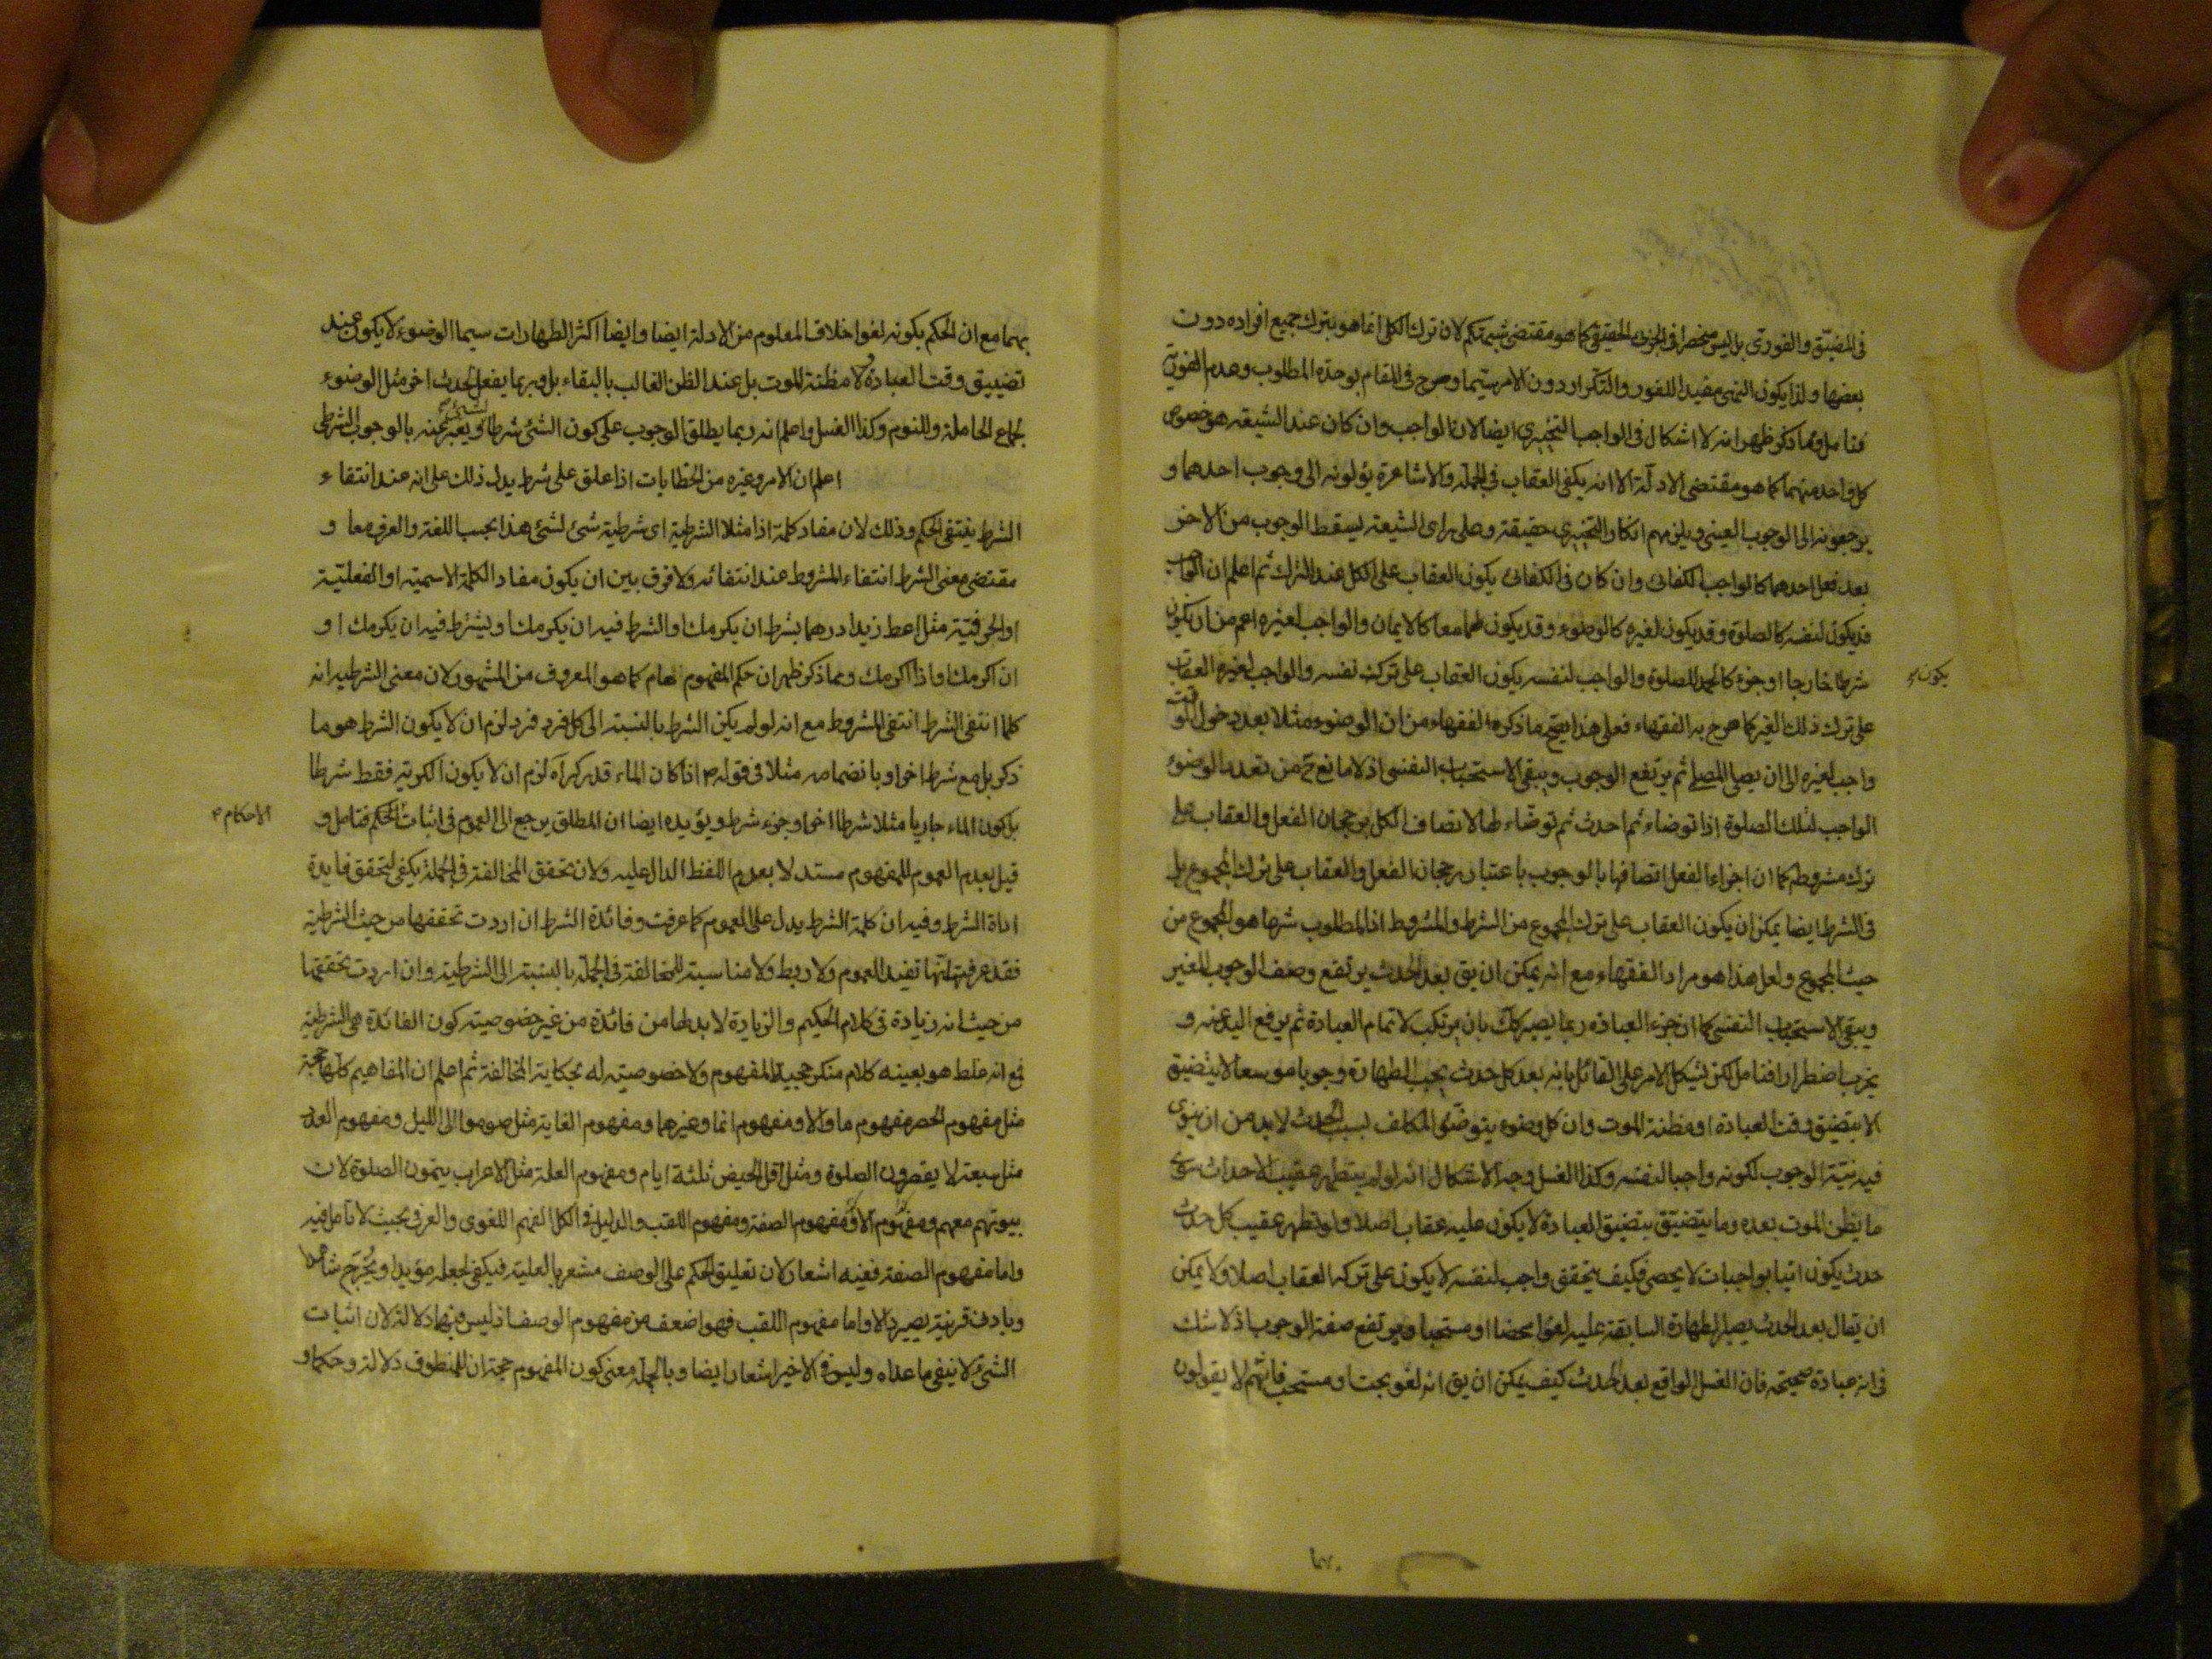 في المضيّق والفوري بل ليس منحصرا في الجزئي الحقيقي كما هو مقتضى شيمتكم لان ترك الكل انما هو بترك جميع افراده دون
بعضها ولذا يكون النهى مفيدا للفور والتكرار دون الامر سيما وصرح في المقام بوحدة المطلوب وعدم الفورية
فتامل ومما ذكر ظهر انه لا اشكال في الواجب التخييري ايضا لان الواجب وان كان عند الشيعة هو خصوص
كل واحد منهما كما هو مقتضى الادلّة الا انه يكفى العقاب في الجملة والاشاعرة يؤلونه الى وجوب احدهما و
يرجعونه الى الوجوب العينى ويلزمهم انكار التخييري حقيقة وعلى راى الشيعة يسقط الوجوب من الاخر
بعد فعل احدهما كالواجب الكفائى وان كان في الكفائى يكون العقاب على الكل عند الترك ثم اعلم ان الواجب
قد يكون لنفسه كالصلوة وقد يكون لغيره كالوضوء وقد يكون لهما معا كالايمان والواجب لغيره اعم من ان يكون
شرطا خارجا او جزء كالحمد للصلوة والواجب لنفسه يكون العقاب على ترك نفسه والواجب لغيره العقاب
يكون
على ترك ذلك الغير كما صرح به الفقهاء فعلى هذا يتجه ما ذكره الفقهاء من ان الوضوء مثلا بعد دخول الوقت
واجب لغيره الى ان يصلى المصلى ثم يرتفع الوجوب ويبقى الاستحباب النفسى اذ لا مانع ح من تعدد الوضوء
الواجب لتلك الصلوة اذا توضاء ثم احدث ثم توضّاء لها لاتصاف الكل برجحان الفعل والعقاب على
ترك مشروطه كما ان اجزاء الفعل اتصافها بالوجوب باعتبار رجحان الفعل والعقاب على ترك المجموع بل
في الشرط ايضا يمكن ان يكون العقاب على ترك المجموع من الشرط والمشروط اذ المطلوب شرعا هو المجموع من
حيث المجموع ولعل هذا هو مراد الفقهاء مع انه يمكن ان يق بعد الحدث يرتفع وصف الوجوب للغير
ويبقى الاستحباب النفسى كما ان جزء العبادة ربما يصير كك بان يرتكب لاتمام العبادة ثم يرفع اليد عنه و
يخرب اضطرارا فتامل لكن يشكل الامر على القائل بانه بعد كل حدث يجب الطهارة وجوبا موسعا لا يتضيق
الا بتضيق وقت العبادة او مظنة الموت وان كل وضوء يتوضّئ المكلف لسبب الحدث لا بد من ان ينوى
فيه نيّة الوجوب لكونه واجبا لنفسه وكذا الغسل وجه الاشكال انه لو لم يتطهر عقيب الاحداث سوى
ما يظن الموت بعده وما يتضيّق بتضيق العبادة لا يكون عليه عقاب اصلا ولو تطهر عقيب كل حدث
حدث يكون اتيا بواجبات لا يحصى فكيف يتحقق واجب لنفسه لا يكون على تركه العقاب اصلا ولا يمكن
ان يقال بعد الحدث يصير الطهارة السابقة عليه لغوا محضا او مستحبا ويرتفع صفة الوجوب اذ لا شك
في انه عبادة صحيحة فان الغسل الواقع بعد الحدث كيف يمكن ان يق انه لغو بحت او مستحب فانهم لا يقولون
بهما مع ان الحكم بكونه لغوا خلاف المعلوم من الادلة ايضا وايضا اكثر الطهارات سيما الوضوء لا يكون عند
تضييق وقت العبادة ولا مظنة الموت بل عند الظن الغالب بالبقاء بل وربما يفعل لحدث اخر مثل الوضوء
لجماع الحاملة وللنوم وكذا الغسل واعلم انه ربما يطلق الوجوب على كون الشئ شرطا لشئ ويعبر عنه بالوجوب الشرطى
اعلم ان الامر وغيره من الخطابات اذا علق على شرط يدل ذلك على انه عند انتفاء
الشرط ينتفى الحكم وذلك لان مفاد كلمة اذا مثلا الشرطية اى شرطية شئ لشئ هذا بحسب اللغة والعرف معا و
مقتضى معنى الشرط انتفاء المشروط عند انتفائه ولا فرق بين ان يكون مفاد الكلمة الاسمية او الفعليّة
او الحرفيّة مثل اعط زيدا درهما بشرط ان يكرمك او الشرط فيه ان يكرمك او يشترط فيه ان يكرمك او
ان اكرمك او اذا اكرمك ومما ذكر ظهر ان حكم المفهوم عام كما هو المعروف من المشهور لان معنى الشرطية انه
كلما انتفى الشرط انتفى المشروط مع انه لو لم يكن الشرط بالنسبة الى كل فرد فرد لزم ان لا يكون الشرط هو ما
ذكر بل مع شرط اخر او بانضمامه مثلا في قوله ع اذا كان الماء قدر كر اه لزم ان لا يكون الكرية فقط شرطا
بل كون الماء جاريا مثلا شرطا اخر او جزء شرط ويؤيده ايضا ان المطلق يرجع الى العموم في اثبات الحكم فتامل و
الاحكام
قيل بعدم العموم للمفهوم مستدلا بعدم اللفظ الدال عليه ولان تحقق المخالفة في الجملة يكفى لتحقق فايدة
اداة الشرط وفيه ان كلمة الشرط يدل على العموم كما عرفت وفائدة الشرط ان اردت تحققها من حيث الشرطية
فقد عرفت انها تفيد العموم ولا ربط ولا مناسبة للمخالفة في الجملة بالنسبة الى الشرطية وان اردت تحققها
من حيث انه زيادة في كلام الحكيم والزيادة لا بد لها من فائدة من غير خصوصية كون الفائدة هى الشرطية
فمع انه غلط هو بعينه كلام منكر حجية المفهوم ولا خصوصية له بحكاية المخالفة ثم اعلم ان المفاهيم كلها حجة
مثل مفهوم الحصر مفهوم ما والا ومفهوم انما وغيرهما ومفهوم الغاية مثل صوموا الى الليل ومفهوم العدد
مثل سبعة لا يقصرون الصلوة ومثل اقل الحيض ثلثة ايام ومفهوم العلة مثل الاعراب يتمون الصلوة لان
بيوتهم معهم ومفهوم الا ومفهوم الصفة ومفهوم اللقب والدليل في الكل الفهم اللغوى والعرفى بحيث لا تامل فيه
واما مفهوم الصفة ففيه اشعار لان تعليق الحكم على الوصف مشعر بالعلية فيكفى لجعله مؤيدا ويخرج شاهدا
وبادنى قرينة يصير دالا واما مفهوم اللقب فهو اضعف من مفهوم الوصف اذ ليس فيهما دلالة لان اثبات
الشئ لا ينفى ما عداه وليس في الاخير اشعار ايضا وبالجملة معنى كون المفهوم حجة ان للمنطوق دلالة وحكما و